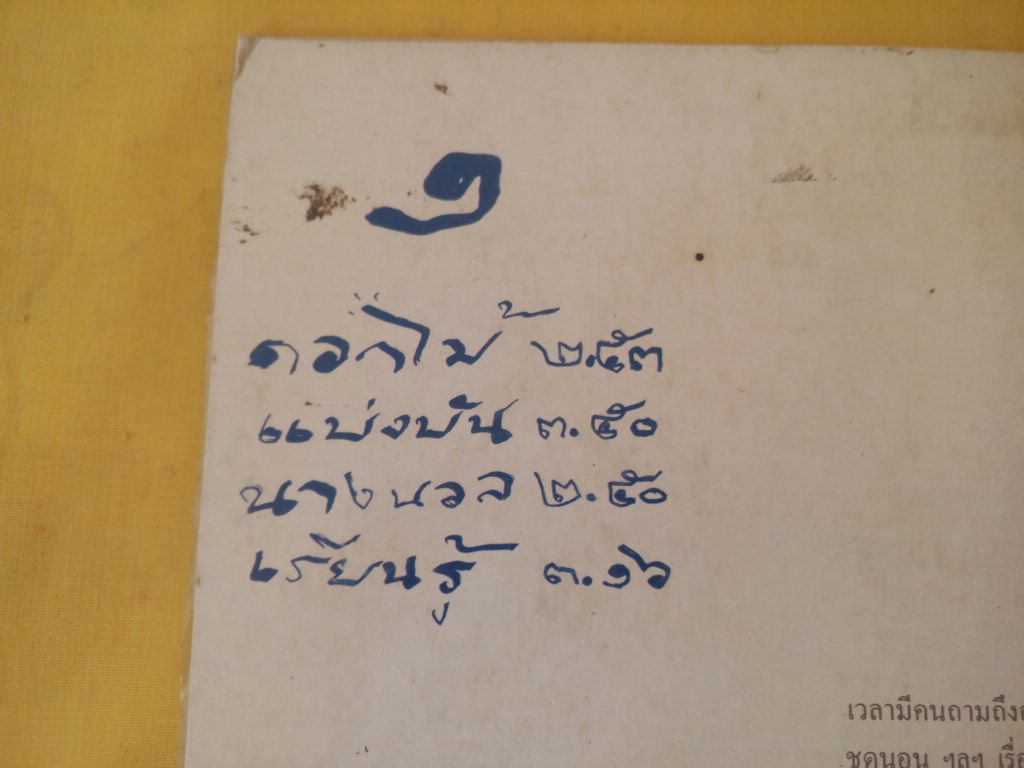 ๑
ดอกไม้ ๒.๕๓
แบ่งบัน ๓.๕๐
นางนวล ๒.๕๐
เรียนรู้ ๓.๑๖
เวลามีคนถามถึง
ชุดนอน ฯลฯ เรื่